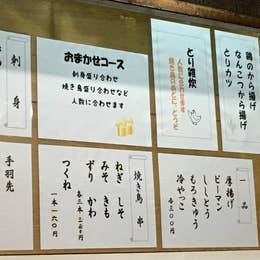 鶏のから揚げ
なんこつから揚げ
とりカツ
とり雑炊
おまかせコース
刺身盛り合わせ
焼き鳥盛り合わせなど
人数に合わせます
刺身
一品
厚揚げ
ピーマン
ししとう
もろきゅう
冷やっこ
各三〇〇円
焼き鳥 串
ねぎ しそ
みそ きも
ずり かわ
つくね
一本一六〇円
手羽先